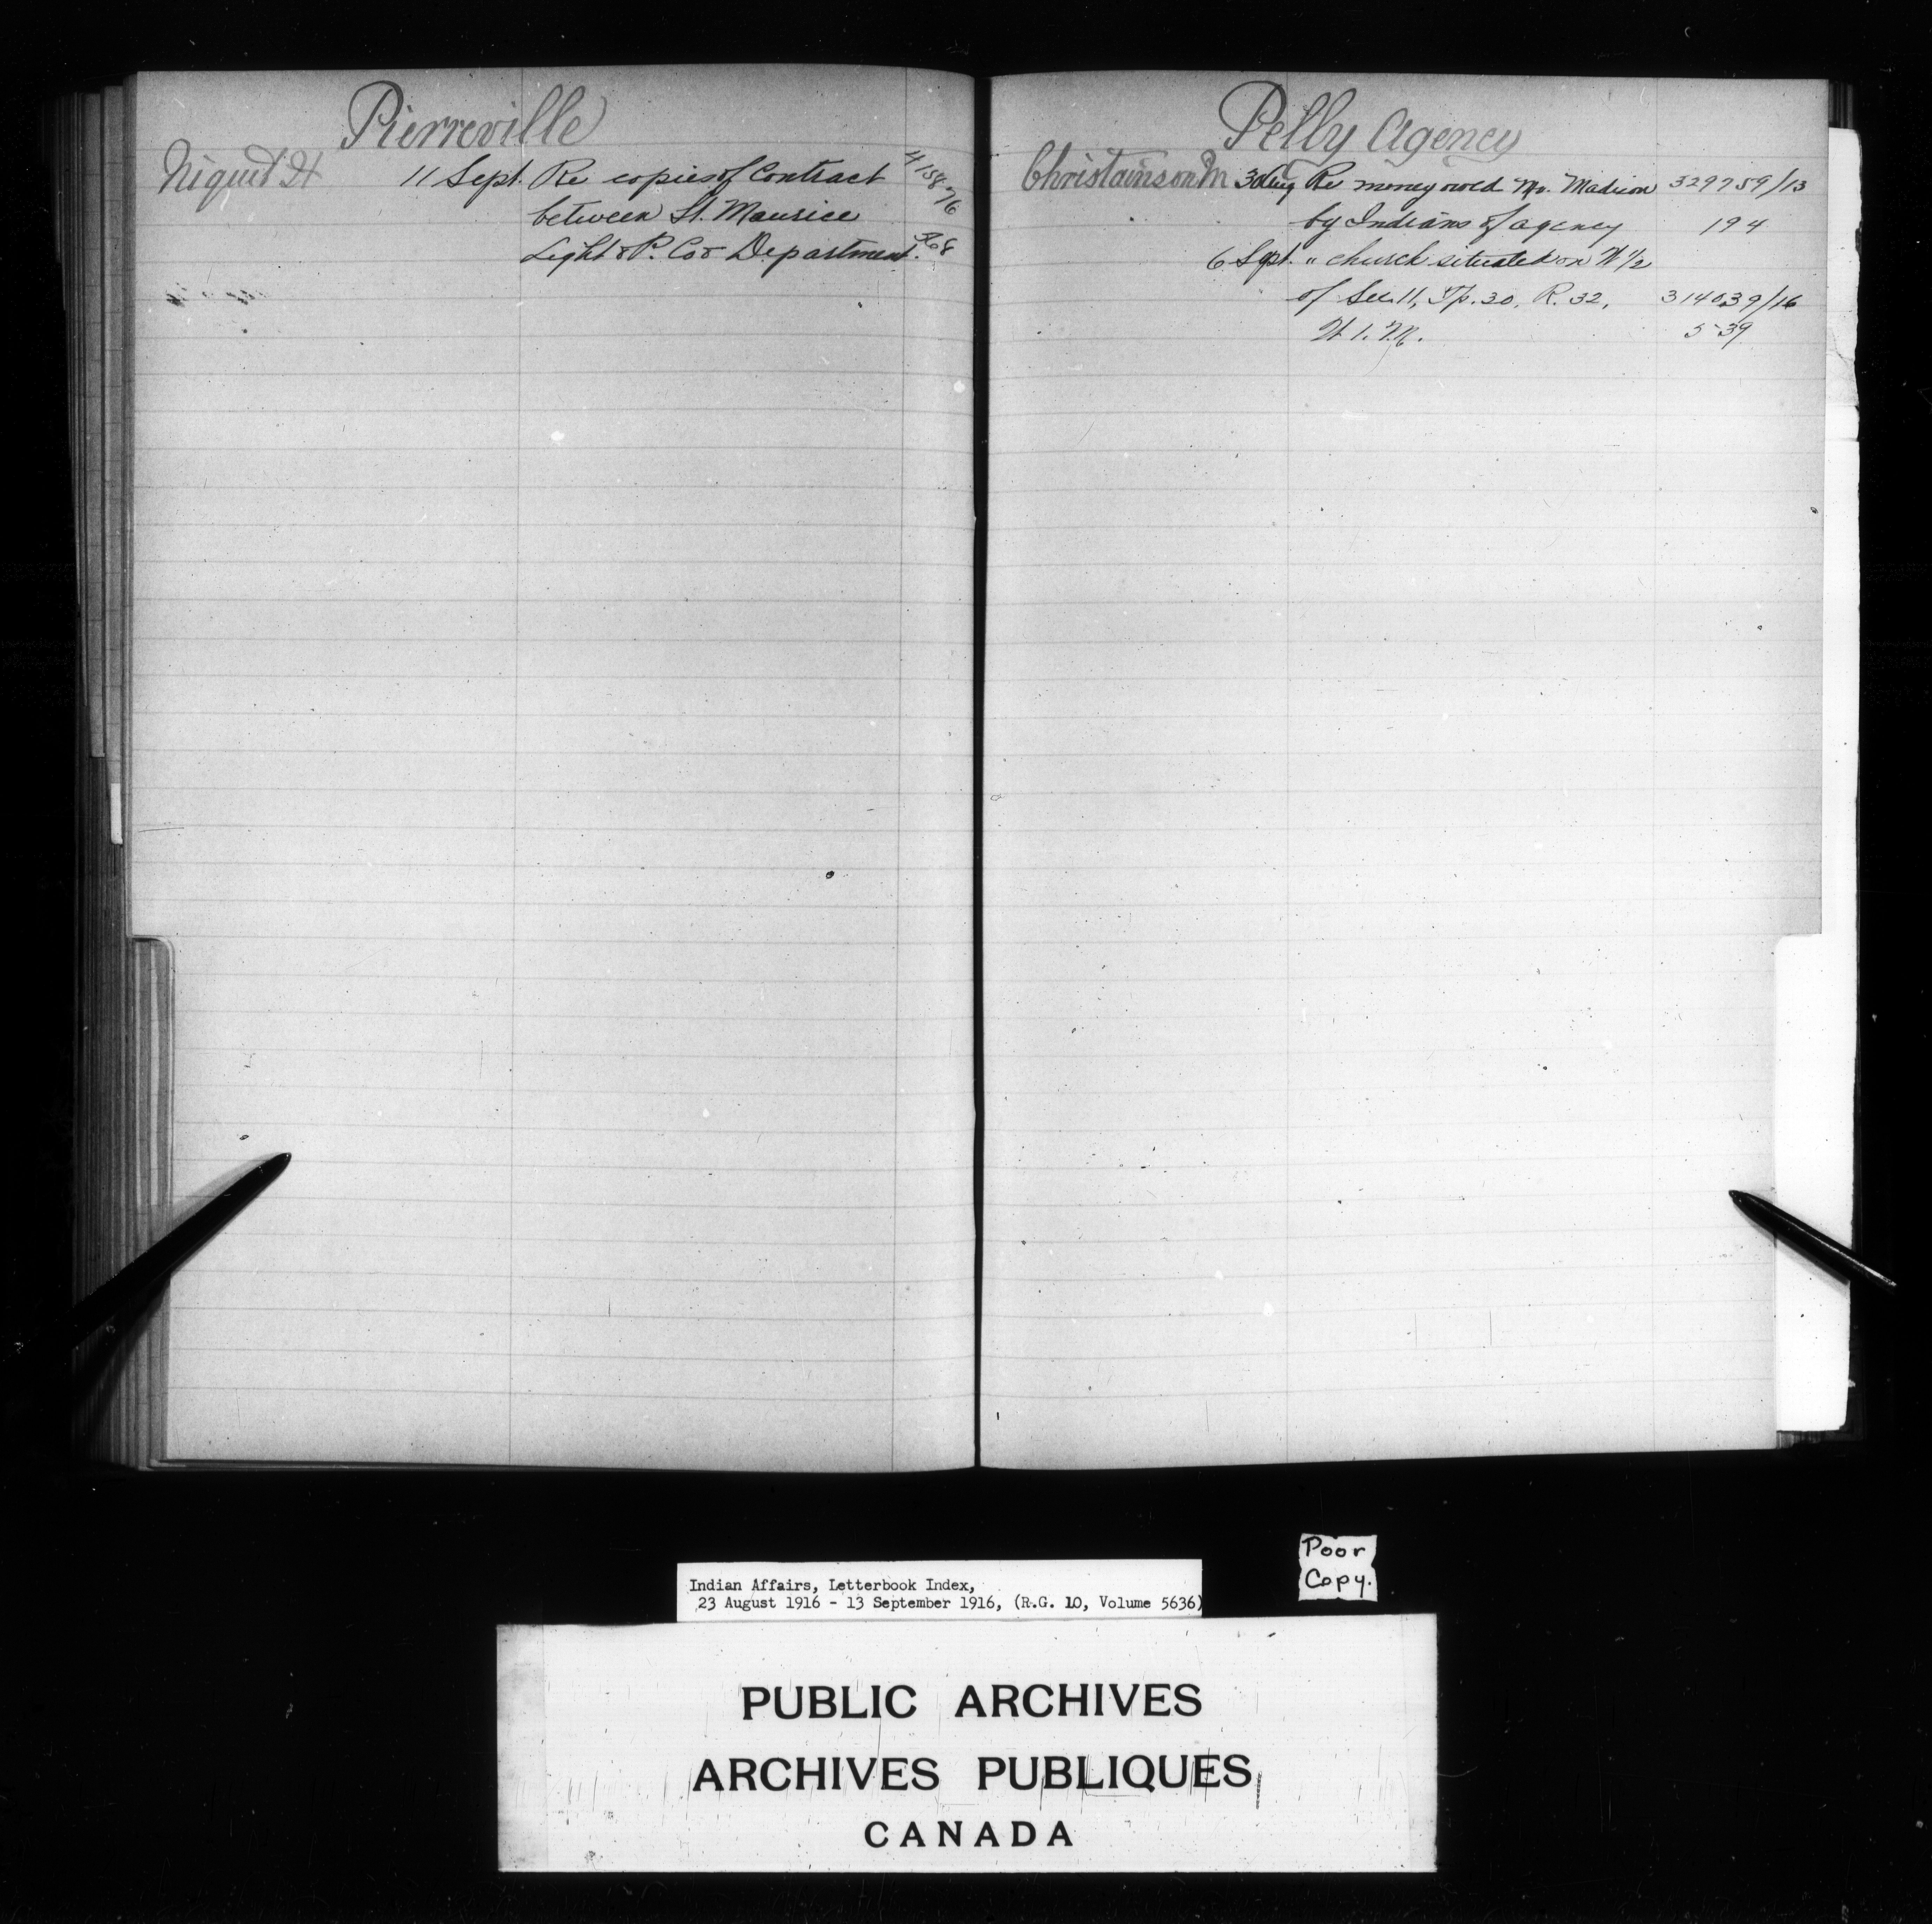 Pierreville
Niquet H 11 Sept. Re copies of Contract 415876
between St. Maurice
Light & P. Co & Department. 868
Pelly Agency
Christainson M 30 Aug Re money owed Mr. Madison 329759/13
by Indians of agency 194
6 Sept. " church situated on W 1/2
of Sec. 11, Tp. 30, R. 32, 314039/16
W 1. M. 539
Poor
Copy.
Indian Affairs, Letterbook Index,
23 August 1916 - 13 September 1916, (R.G. 10, Volume 5636)
PUBLIC ARCHIVES
ARCHIVES PUBLIQUES
CANADA